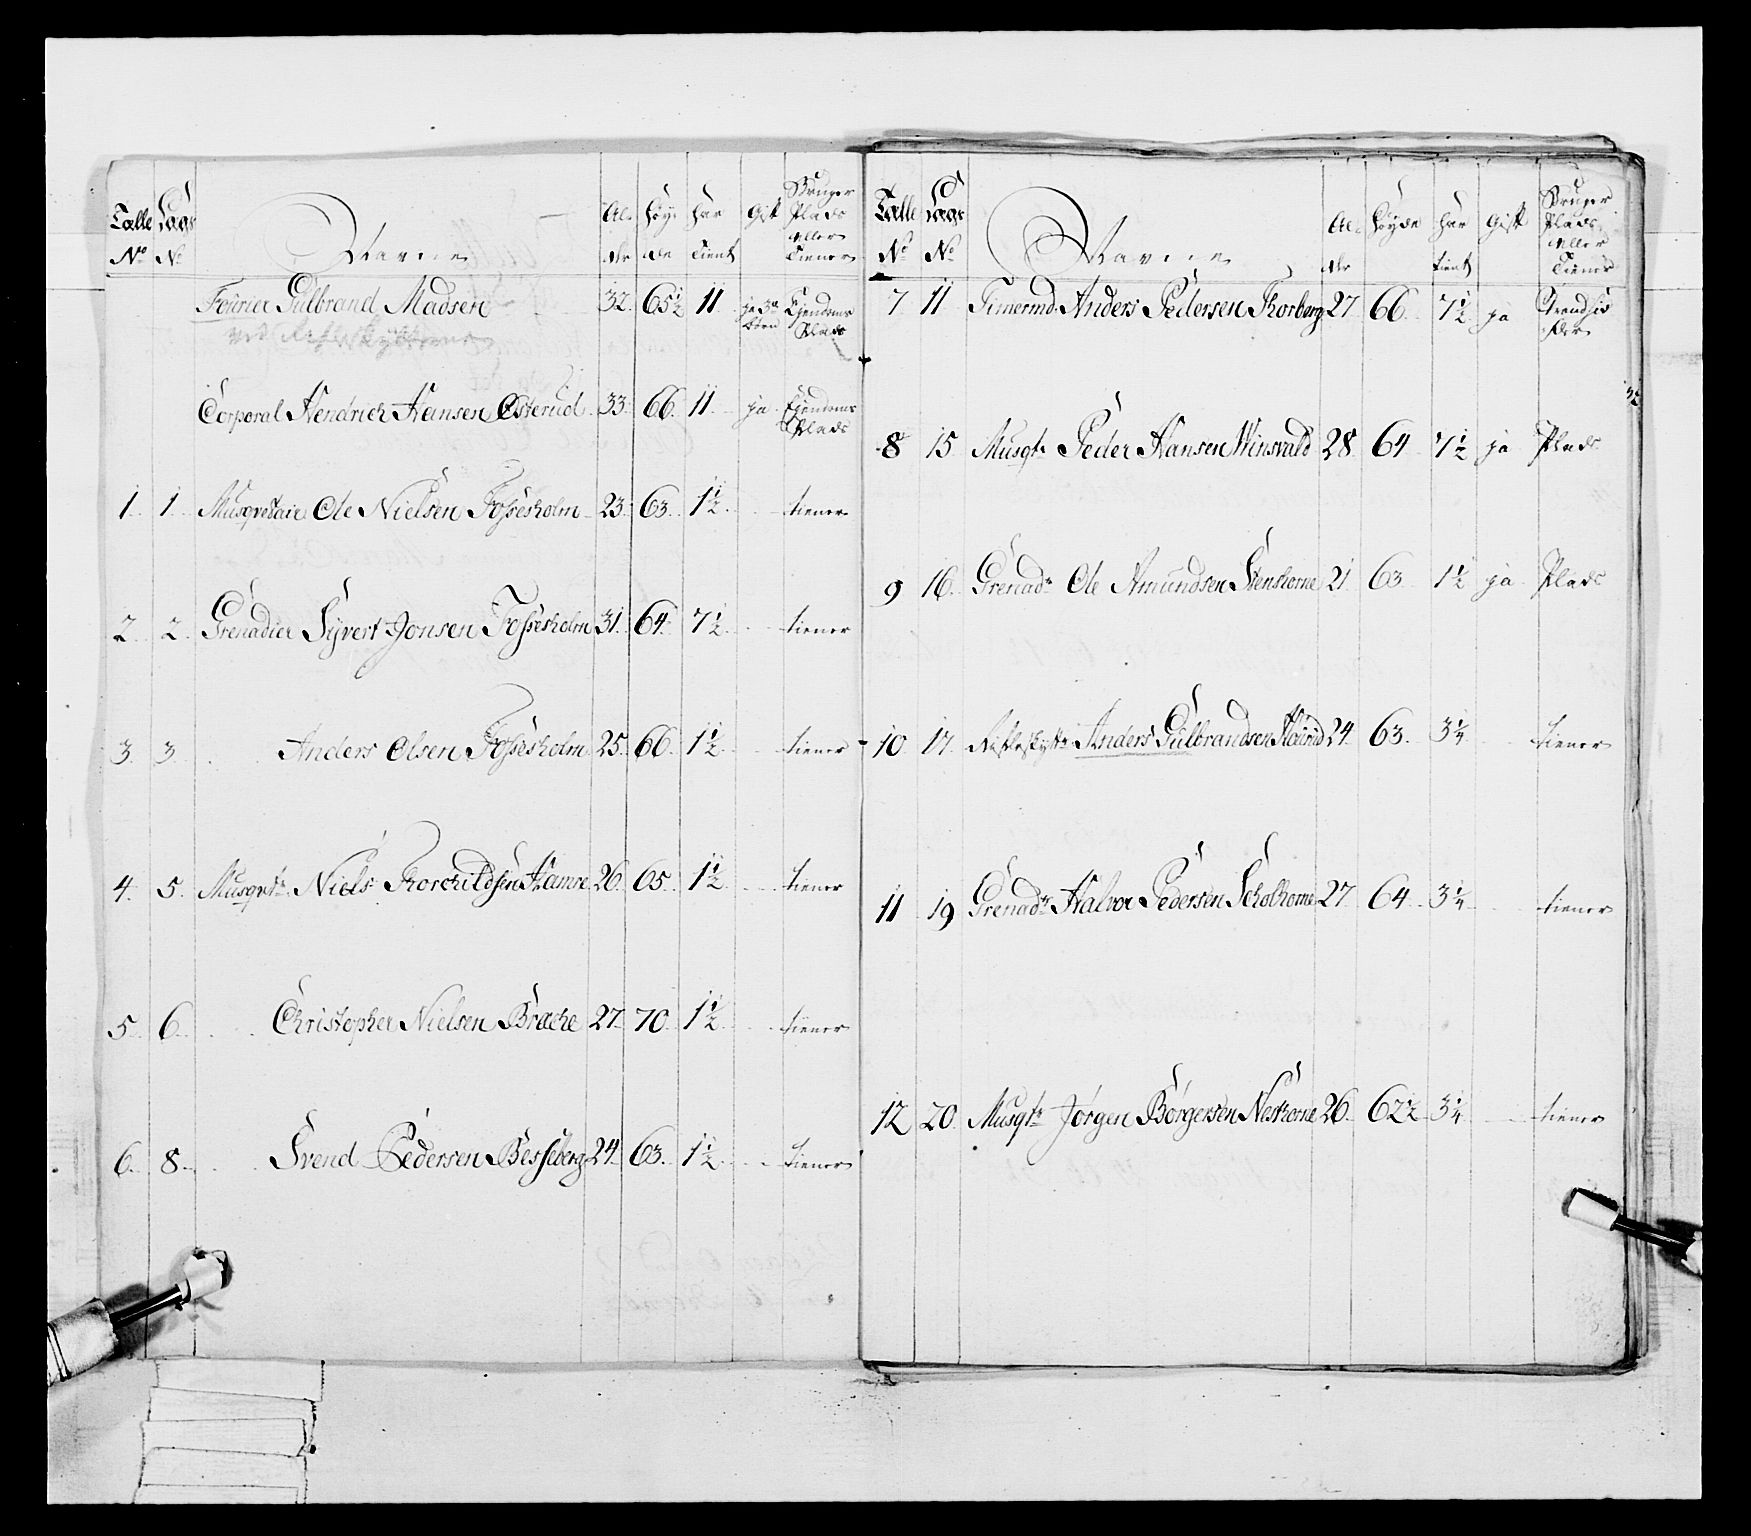 Talle No Lægs No Navne Alder Høyde Har Tient Gift Bruger Plads eller Tiener
Fourier Gulbrand Madsen 32 65½ 11 ja 3 børn Ejendoms Plads
ved Rifleskytterne
Corporal Hendrich Hansen Østerud 33 66 11 ja Ejendoms Plads
1 1 Musqvetair Ole Nielsen Fossesholm 23 63 1½ tiener
2 2 Grenadier Syvert Jonsen Fossesholm 31 64 7½ tiener
3 3 Anders Olsen Fossesholm 25 66 1½ tiener
4 5 Musqvtr Niels Thorchildsen Hamre 26 65 1½ tiener
5 6 Christopher Nielsen Brache 27 70 1½ tiener
6 8 Svend Pedersen Besseberg 24 63 1½ tiener
Talle No Lægs No Navne Alder Høyde Har tient Gift Bruger Plads eller Tiener
7 11 Timermd Anders Pedersen Thorberg 27 66 7½ ja
8 15 Musqtr Peder Hansen Winsvald 28 64 7½ ja Plads
9 16 Grenadr Ole Amundsen Stenshorne 21 63 1½ ja Plads
10 17 Rifleskytte Anders Gulbrandsen Flourud 24 63 3¼ tiener
11 19 Grenadr Halvor Pedersen Scholhorne 27 64 3¼ tiener
12 20 Musqtr Jørgen Børgersen Neshorne 26 62½ 3¼ tiener